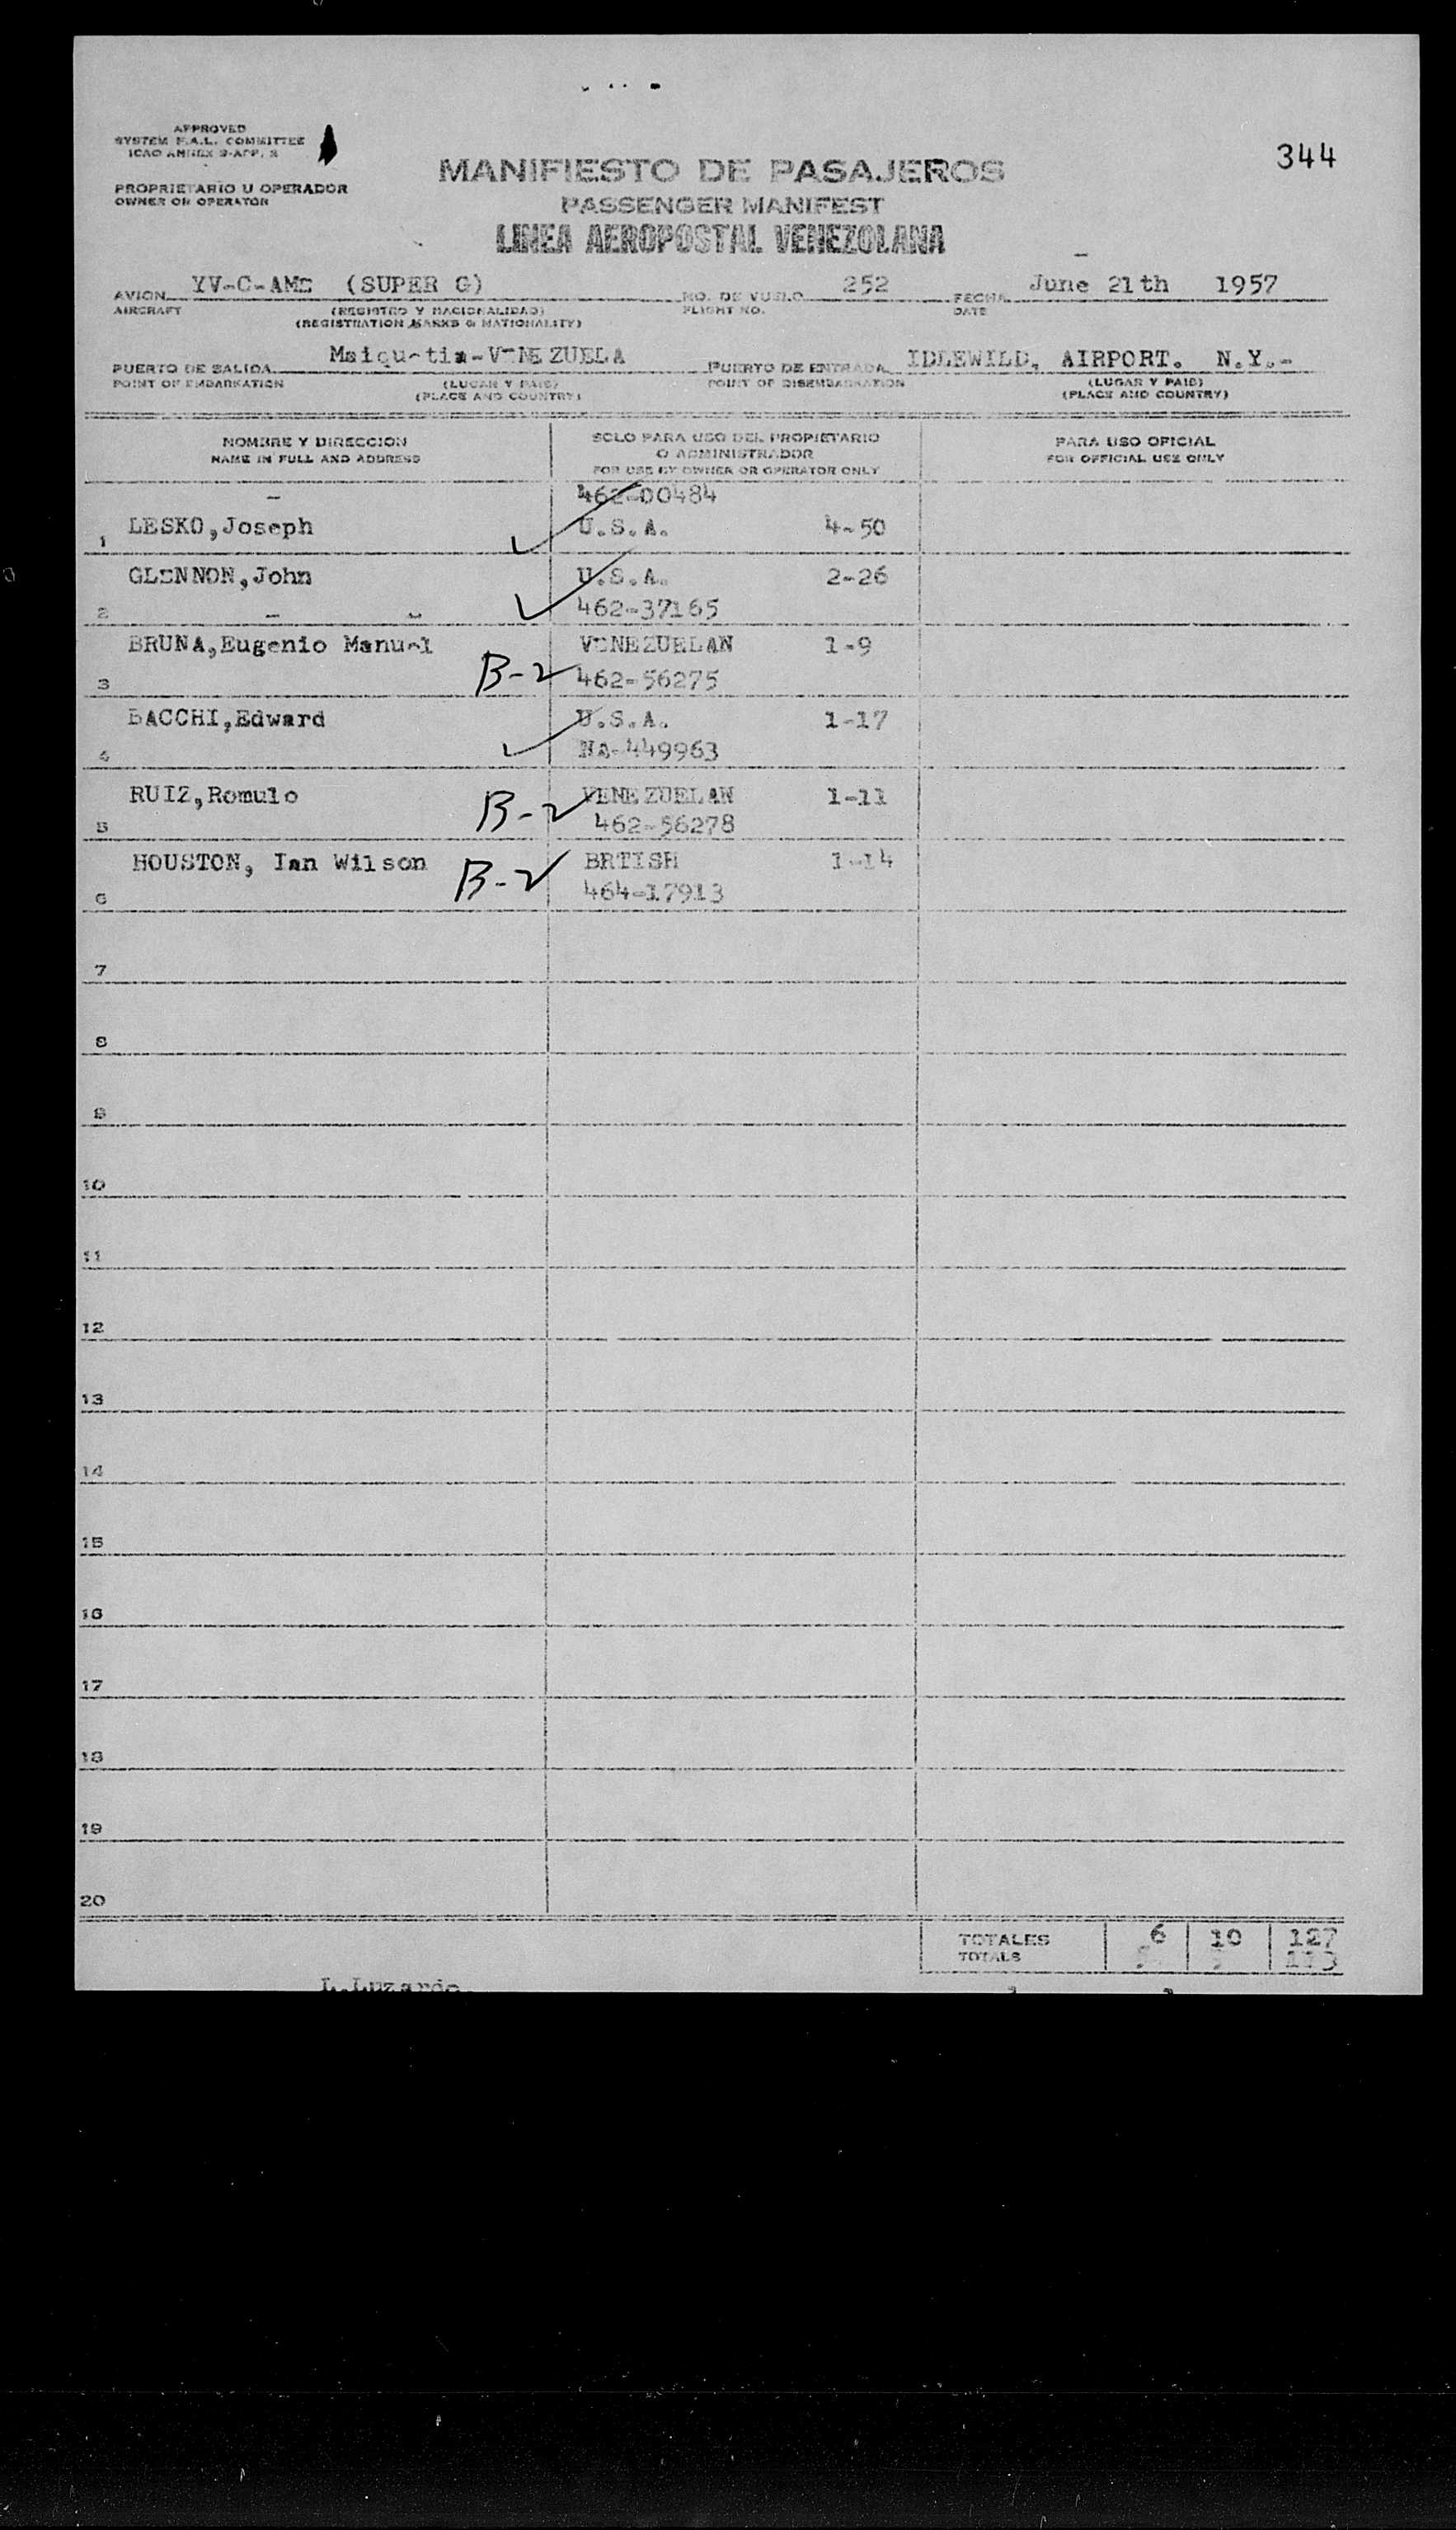 APPROVED
SYSTEM F.A.L. COMMITTEE
ICAO ANNEX 9-APP. 2
344
PROPRIETARIO U OPERADOR
OWNER OR OPERATOR
MANIFIESTO DE PASAJEROS
PASSENGER MANIFEST
LINEA AEROPOSTAL VENEZOLANA
AVION YV-C-AME (SUPER G) NO. DE VUELO 252 FECHA June 21th 1957
AIRCRAFT (REGISTRO Y NACIONALIDAD) FLIGHT NO. DATE
(REGISTRATION MARKS & NATIONALITY)
PUERTO DE SALIDA Maiquetia-VENEZUELA PUERTO DE ENTRADA IDLEWILD, AIRPORT. N.Y.-
POINT OF EMBARKATION (LUGAR Y PAIS) POINT OF DISEMBARKATION (LUGAR Y PAIS)
(PLACE AND COUNTRY) (PLACE AND COUNTRY)
NOMBRE Y DIRECCION SOLO PARA USO DEL PROPIETARIO PARA USO OFICIAL
NAME IN FULL AND ADDRESS O ADMINISTRADOR FOR OFFICIAL USE ONLY
FOR USE BY OWNER OR OPERATOR ONLY
462-00484
1 LESKO,Joseph U.S.A. 4-50
GLENNON,John U.S.A. 2-26
2 462-37165
BRUNA,Eugenio Manuel VENEZUELAN 1-9
3 B-2 462-56275
BACCHI,Edward U.S.A. 1-17
4 NA-449963
RUIZ,Romulo B-2 VENEZUELAN 1-11
5 462-56278
HOUSTON, Ian Wilson B-2 BRTISH 1-14
6 464-17913
7
8
9
10
11
12
13
14
15
16
17
18
19
20
TOTALES 6 10 127
TOTALS 113
L.Luzardo.